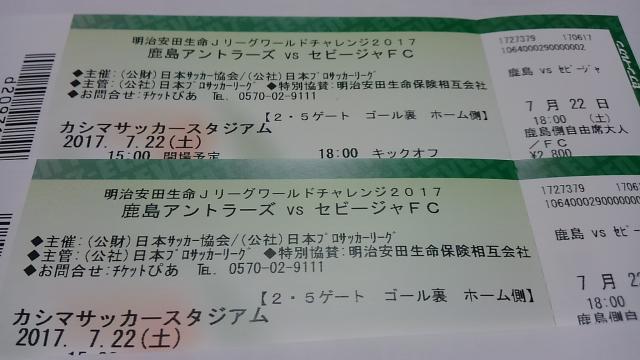 明治安田生命Jリーグワールドチャレンジ2017
鹿島アントラーズ vs セビージャFC
◆主催:(公財)日本サッカー協会/(公社)日本プロサッカーリーグ
◆主管:(公社)日本プロサッカーリーグ ◆特別協賛:明治安田生命保険相互会社
◆お問合せ:チケットぴあ TEL. 0570-02-9111
【2・5ゲート ゴール裏 ホーム側】
カシマサッカースタジアム
2017. 7.22(土)
15:00 開場予定 18:00 キックオフ
1727379 170617
1064000290000002
鹿島 vs セビージャ
7月22日
18:00 (土)
鹿島側自由席大人
/FC
¥2,800
明治安田生命Jリーグワールドチャレンジ2017
鹿島アントラーズ vs セビージャFC
◆主催:(公財)日本サッカー協会/(公社)日本プロサッカーリーグ
◆主管:(公社)日本プロサッカーリーグ ◆特別協賛:明治安田生命保険相互会社
◆お問合せ:チケットぴあ TEL. 0570-02-9111
【2・5ゲート ゴール裏 ホーム側】
カシマサッカースタジアム
2017. 7.22(土)
1727379
鹿島 vs セビー
7月22
18:00
鹿島側自由